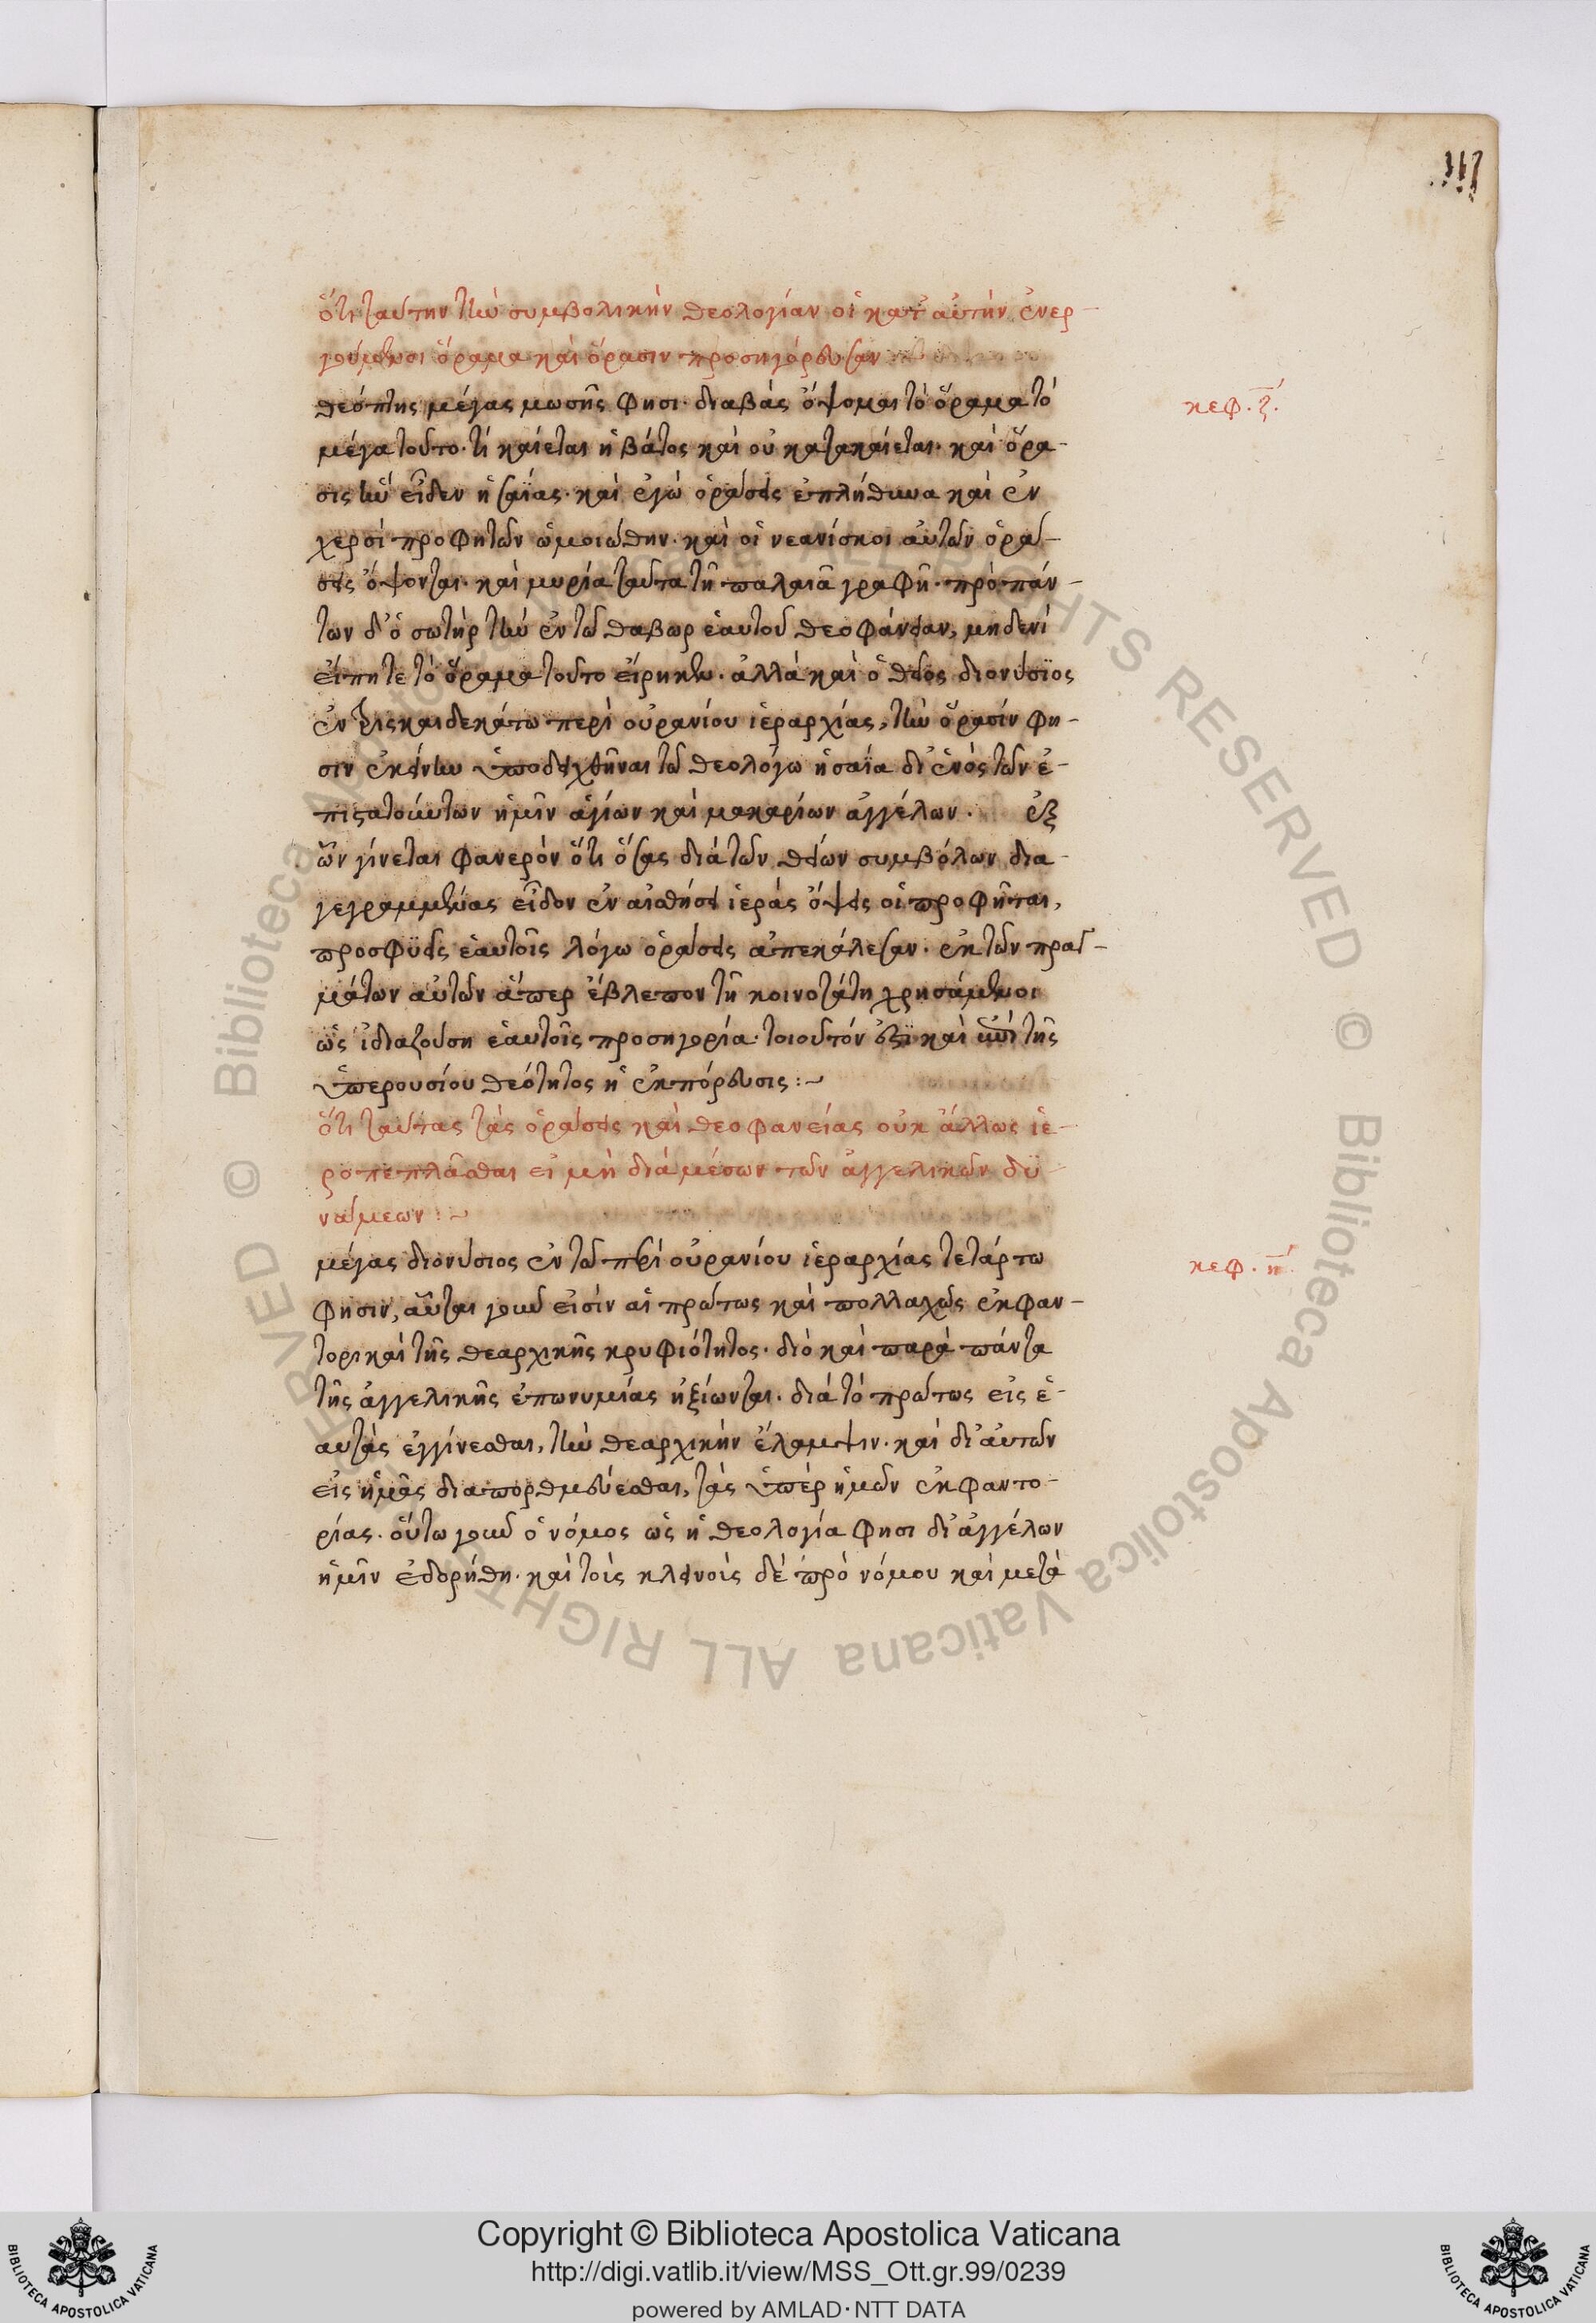 ὅτι ταύτην τὴν συμβολικὴν θεολογίαν οἱ κατ' αὐτὴν ἐνερ-
γούμενοι ὅραμα καὶ ὅρασιν προσηγόρευσαν
θεόπτης μέγας μωσῆς φησι· διαβὰς ὄψομαι τὸ ὅραμα τὸ
κεφ. ζ.
μέγα τοῦτο· τί καίεται ἡ βάτος καὶ οὐ κατακαίεται· καὶ ὅρα-
σις ἣν εἶδεν ἡσαΐας· καὶ ἐγὼ ὁράσεις ἐπλήθυνα καὶ ἐν
χερσὶ προφητῶν ὡμοιώθην· καὶ οἱ νεανίσκοι αὐτῶν ὁρά-
σεις ὄψονται· καὶ μυρία ταῦτα τῇ παλαιᾷ γραφῇ· πρὸ πάν-
των δ' ὁ σωτὴρ τὴν ἐν τῷ θαβωρ ἑαυτοῦ θεοφάνειαν, μηδενὶ
εἴπητε τὸ ὅραμα τοῦτο εἴρηκεν· ἀλλὰ καὶ ὁ θεῖος διονύσιος
ἐν τρισκαιδεκάτω περὶ οὐρανίου ἱεραρχίας, τὴν ὅρασίν φη-
σιν ἐκείνην ὑποδειχθῆναι τῷ θεολόγω ἡσαΐα δι' ἑνὸς τῶν ἐ-
πιστατούντων ἡμῖν ἁγίων καὶ μακαρίων ἀγγέλων. ἐξ
ὧν γίνεται φανερὸν ὅτι ὅσας διὰ τῶν θείων συμβόλων δια-
γεγραμμένας εἶδον ἐν αἰσθήσει ἱερὰς ὄψεις οἱ προφῆται,
προσφυεῖς ἑαυτοῖς λόγω ὁράσεις ἀπεκάλεσαν. ἐκ τῶν πραγ-
μάτων αὐτῶν ἅπερ ἔβλεπον τῇ κοινοτάτη χρησάμενοι
ὡς ἰδιαζούση ἑαυτοῖς προσηγορία· τοιοῦτόν ἐστι καὶ τῆς
ὑπερουσίου θεότητος ἡ ἐκπόρευσις:~
ὅτι ταύτας τὰς ὁράσεις καὶ θεοφανείας οὐκ ἄλλως ἱε-
ροπεπλᾶσθαι εἰ μὴ διὰ μέσων τῶν ἀγγελικῶν δυ-
νάμεων:~
μέγας διονύσιος ἐν τῷ περὶ οὐρανίου ἱεραρχίας τετάρτω
κεφ. η.
φησιν, αὗται γοῦν εἰσὶν αἱ πρώτως καὶ πολλαχῶς ἐκφαν-
τορικαὶ τῆς θεαρχικῆς κρυφιότητος· διὸ καὶ παρὰ πάντα
τῆς ἀγγελικῆς ἐπωνυμίας ἠξίωνται· διὰ τὸ πρώτως εἰς ἑ-
αυτὰς ἐγγίνεσθαι, τὴν θεαρχικὴν ἔλαμψιν· καὶ δι' αὐτῶν
εἰς ἡμᾶς διαπορθμεύεσθαι, τὰς ὑπὲρ ἡμῶν ἐκφαντο-
ρίας. οὕτω γοῦν ὁ νόμος ὡς ἡ θεολογία φησι δι' ἀγγέλων
ἡμῖν ἐδορήθη· καὶ τοὶς κλεινοὶς δὲ πρὸ νόμου καὶ μετὰ
Copyright © Biblioteca Apostolica Vaticana
http://digi.vatlib.it/view/MSS_Ott.gr.99/0239
powered by AMLAD·NTT DATA